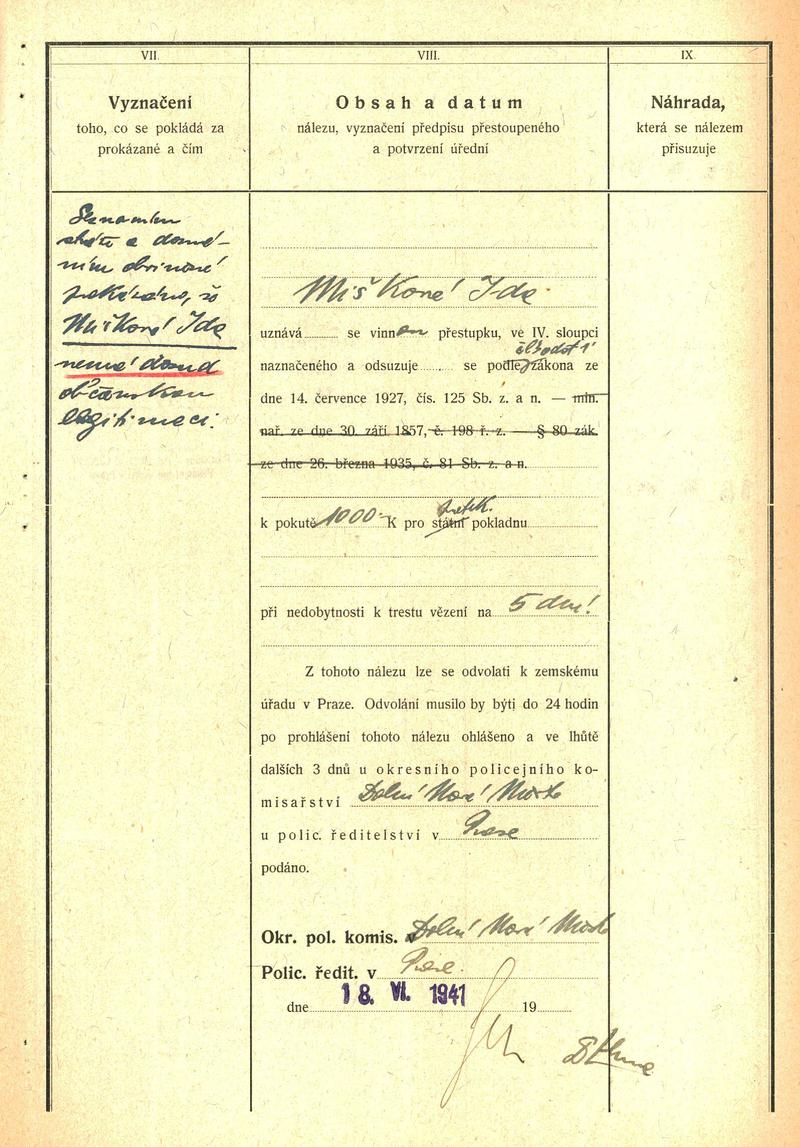 VII.
Vyznačení
toho, co se pokládá za
prokázané a čím
Seznámím
a domě-
ním obvinené
prokázáno, že
Miškoné Ida
nemá dosud
občanskou
legitimaci.
VIII.
Obsah a datum
nálezu, vyznačení předpisu přestoupeného
a potvrzení úřední
Miškoné Ida
uznává se vinnou přestupku, ve IV. sloupci
naznačeného a odsuzuje se podle zákona ze
dne 14. července 1927, čís. 125 Sb. z. a n. — min.
nař. ze dne 30. září 1857, č. 198 ř. z. — § 80 zák.
ze dne 26. března 1935, č. 81 Sb. z. a n.
k pokutě 1000·- K pro státní pokladnu
při nedobytnosti k trestu vězení na 5 dní
Z tohoto nálezu lze se odvolati k zemskému
úřadu v Praze. Odvolání musilo by býti do 24 hodin
po prohlášení tohoto nálezu ohlášeno a ve lhůtě
dalších 3 dnů u okresního policejního ko-
misařství Dolní Nové Město
u polic. ředitelství v Praze
podáno.
Okr. pol. komis. v Dolní Nové Město
Polic. ředit. v Praze
dne 18. VI. 1941 19
IX.
Náhrada,
která se nálezem
přisuzuje